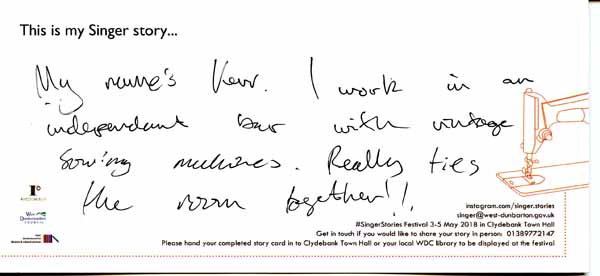 This is my Singer story...
My name's Kerr. I work in an
independant bar with vintage
Sewing machines. Really ties
the room together!!
instagram.com/singer.stories
singer@west-dunbarton.gov.uk
#SingerStories Festival 3-5 May 2018 in Clydebank Town Hall
Get in touch if you would like to share your story in person: 01389772147
Please hand your completed story card in to Clydebank Town Hall or your local WDC library to be displayed at the festival